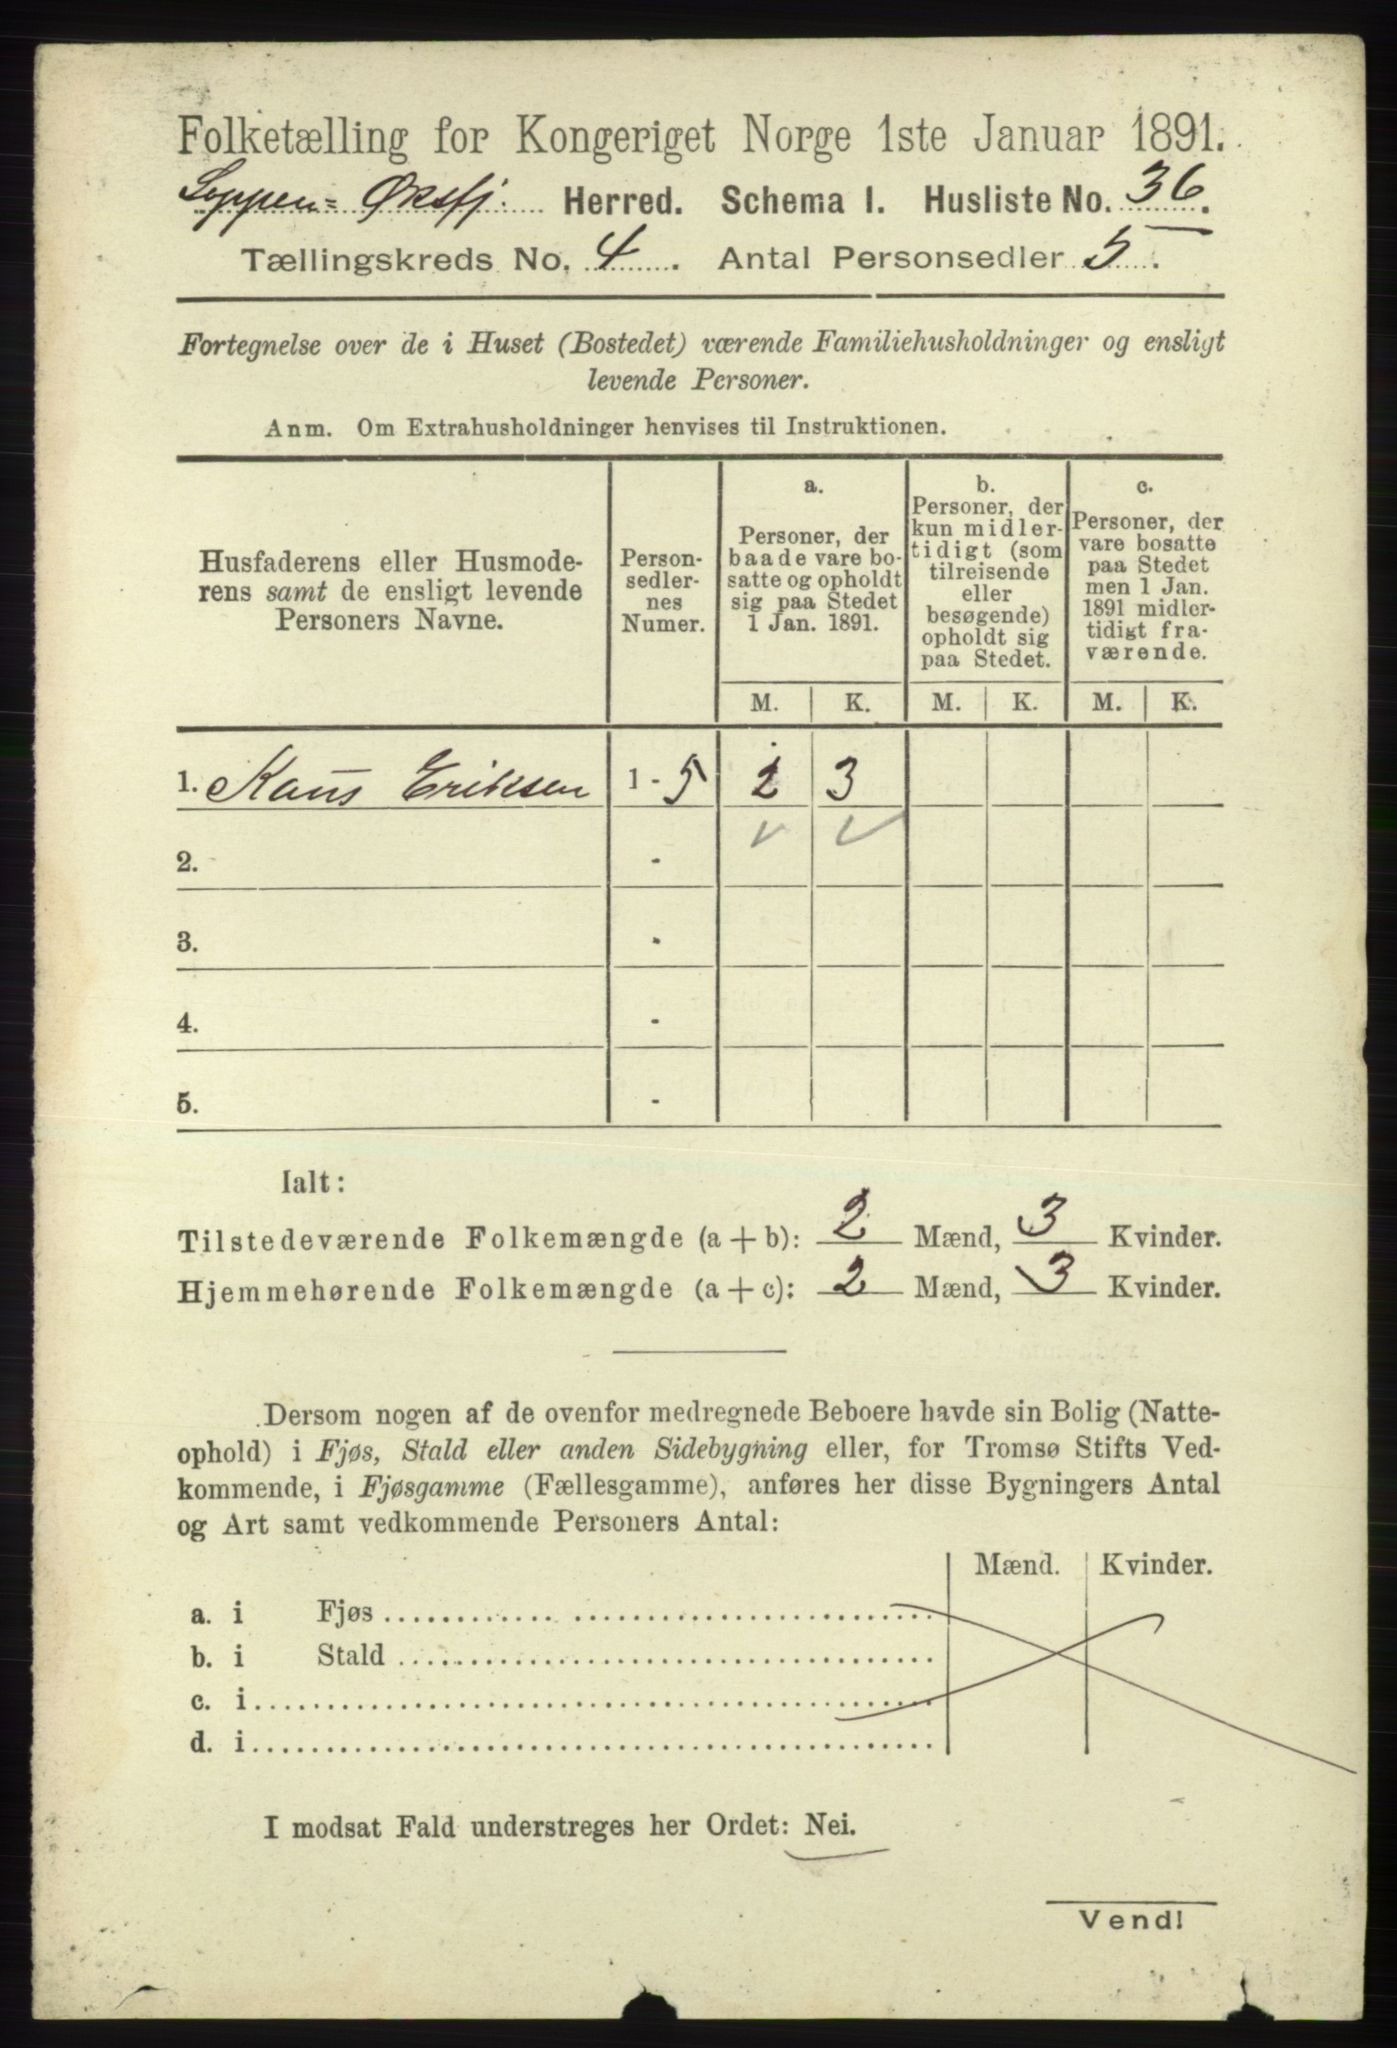 Folketælling for Kongeriget Norge 1ste Januar 1891.
Loppen= Øksfj. Herred. Schema I. Husliste No. 36.
Tællingskreds No. 4. Antal Personsedler 5.
Fortegnelse over de i Huset (Bostedet) værende Familiehusholdninger og ensligt
levende Personer.
Anm. Om Extrahusholdninger henvises til Instruktionen.
Husfaderens eller Husmode-
rens samt de ensligt levende
Personers Navne.
Person-
sedler-
nes
Numer.
a.
Personer, der
baade vare bo-
satte og opholdt
sig paa Stedet
1 Jan. 1891.
b.
Personer, der
kun midler-
tidigt (som
tilreisende
eller
besøgende)
opholdt sig
paa Stedet.
c.
Personer, der
vare bosatte
paa Stedet
men 1 Jan.
1891 midler-
tidigt fra-
værende.
M. K. M. K. M. K.
1. Eriksen 1 - 5 2 3
2. -
3. -
4. -
5. -
Ialt:
Tilstedeværende Folkemængde (a + b): 2 Mænd, 3 Kvinder.
Hjemmehørende Folkemængde (a + c): 2 Mænd, 3 Kvinder.
Dersom nogen af de ovenfor medregnede Beboere havde sin Bolig (Natte-
ophold) i Fjøs, Stald eller anden Sidebygning eller, for Tromsø Stifts Ved-
kommende, i Fjøsgamme (Fællesgamme), anføres her disse Bygningers Antal
og Art samt vedkommende Personers Antal:
Mænd. Kvinder.
a. i Fjøs
b. i Stald
c. i
d. i
I modsat Fald understreges her Ordet: Nei.
Vend!